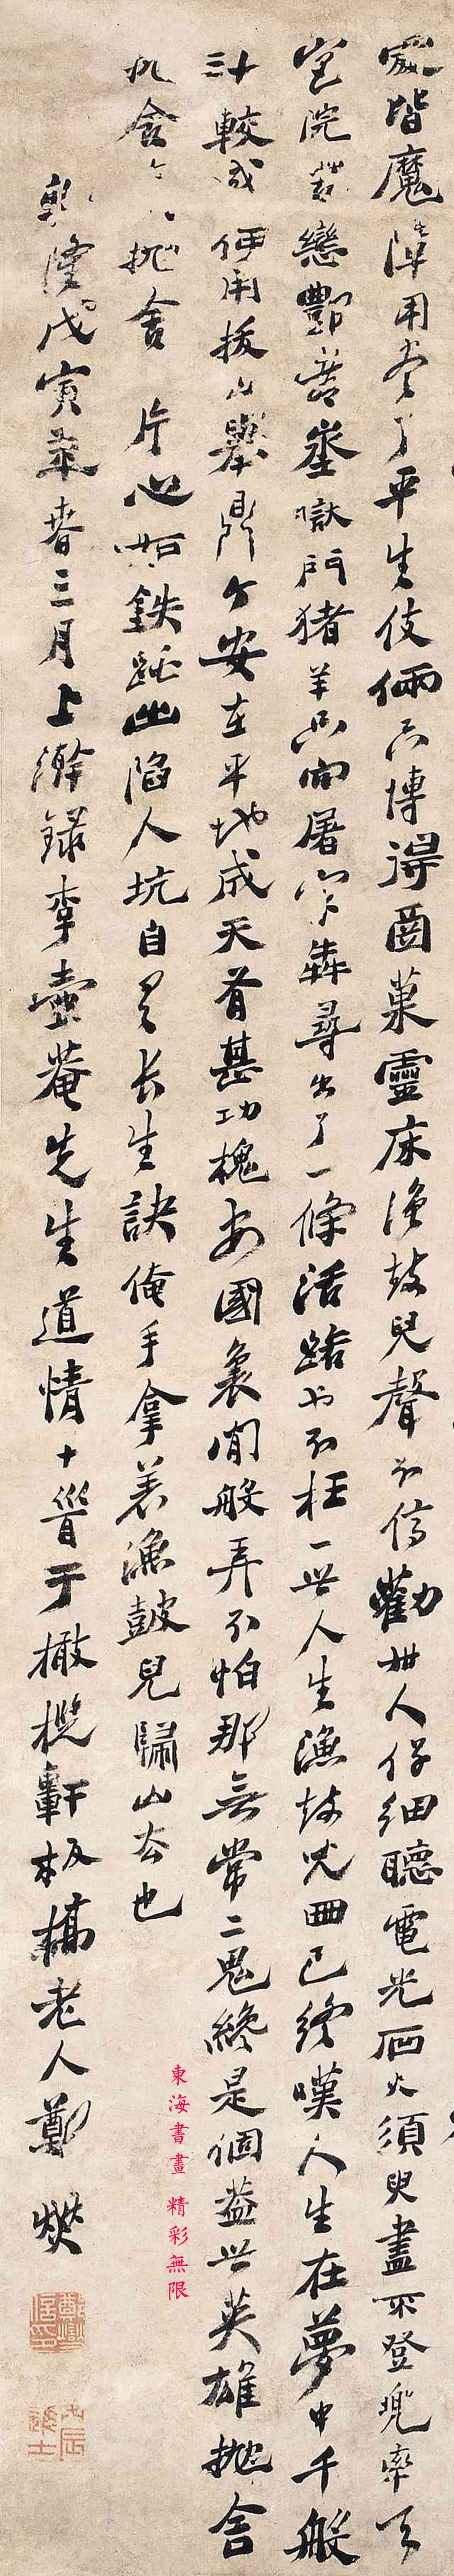 皆魔障用尽了平生伎倆只博得面菓靈床漁鼓兒聲不停勸世人仔細聽電光石火須臾盡不登兜率天
定院戀酆都獄門猪羊只向屠家奔尋出了一條活路也不枉一世人生漁鼓兒曲已終嘆人生在夢中千般
計較成何用拔山舉鼎今安在平地成天有甚功槐安國裏閒般弄不怕那無常二鬼終是個蓋世英雄拋舍
拋舍片心如鐵跳出陷人坑自有長生訣俺手拿着漁鼓兒歸山去也
乾隆戊寅年春三月上澣錄李壺菴先生道情十首于橄欖軒板橋老人鄭燮
東海書畫 精彩無限
鄭燮
丙辰進士